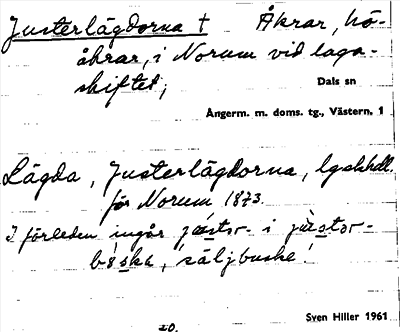 Justerlägdorna † Åkrar, hö-
åkrar, i Norum vid laga-
skiftet;
Dals sn
Ångerm. m. doms. tg., Västern. 1
Lägda, Justerlägdorna, lgskhdl.
för Norum 1873.
I förleden ingår juster- i juster-
buske, 'säljbuske'.
Sven Hiller 1961
20.